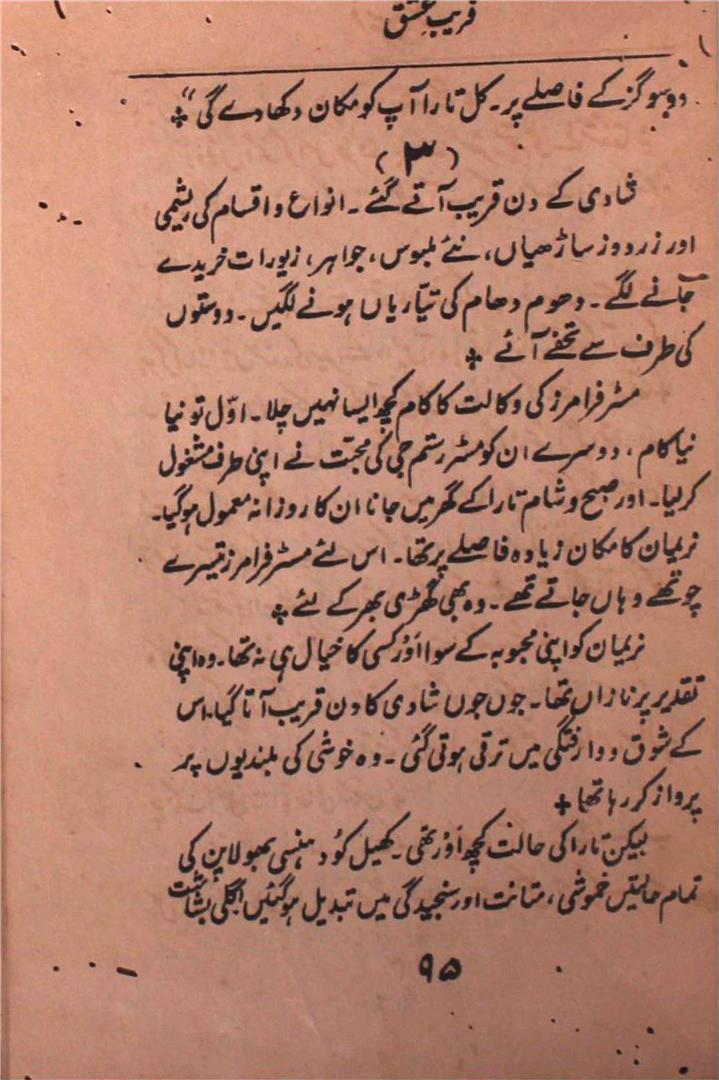 فریبِ عشق
دو سو گز کے فاصلے پر۔ کل تارا آپ کو مکان دکھا دے گی“ ٭
(۳)
شادی کے دن قریب آتے گئے۔ انواع و اقسام کی ریشمی
اور زردوز ساڑھیاں، نئے ملبوس، جواہر، زیورات خریدے
جانے لگے۔ دھوم دھام کی تیّاریاں ہونے لگیں۔ دوستوں
کی طرف سے تحفے آئے ٭
مسٹر فرامرز کی وکالت کا کام کچھ ایسا نہیں چلا۔ اوّل تو نیا
نیا کام، دوسرے ان کو مسٹر رستم جی کی محبّت نے اپنی طرف مشغول
کر لیا۔ اور صبح و شام تارا کے گھر میں جانا ان کا روزانہ معمول ہو گیا۔
نریمان کا مکان زیادہ فاصلے پر تھا۔ اس لئے مسٹر فرامرز تیسرے
چوتھے وہاں جاتے تھے۔ وہ بھی گھڑی بھر کے لئے ٭
نریمان کو اپنی محبوبہ کے سوا اَوْر کسی کا خیال ہی نہ تھا۔ وہ اپنی
تقدیر پر نازاں تھا۔ جوں جوں شادی کا دن قریب آتا گیا۔ اس
کے شوق و وارفتگی میں ترقی ہوتی گئی۔ وہ خوشی کی بلندیوں پر
پرواز کر رہا تھا ٭
لیکن تارا کی حالت کچھ اَوْر تھی۔ کھیل کُود ہنسی بھولا پن کی
تمام حالتیں خموشی، متانت اور سنجیدگی میں تبدیل ہو گئیں اگلی بشاشت
۹۵